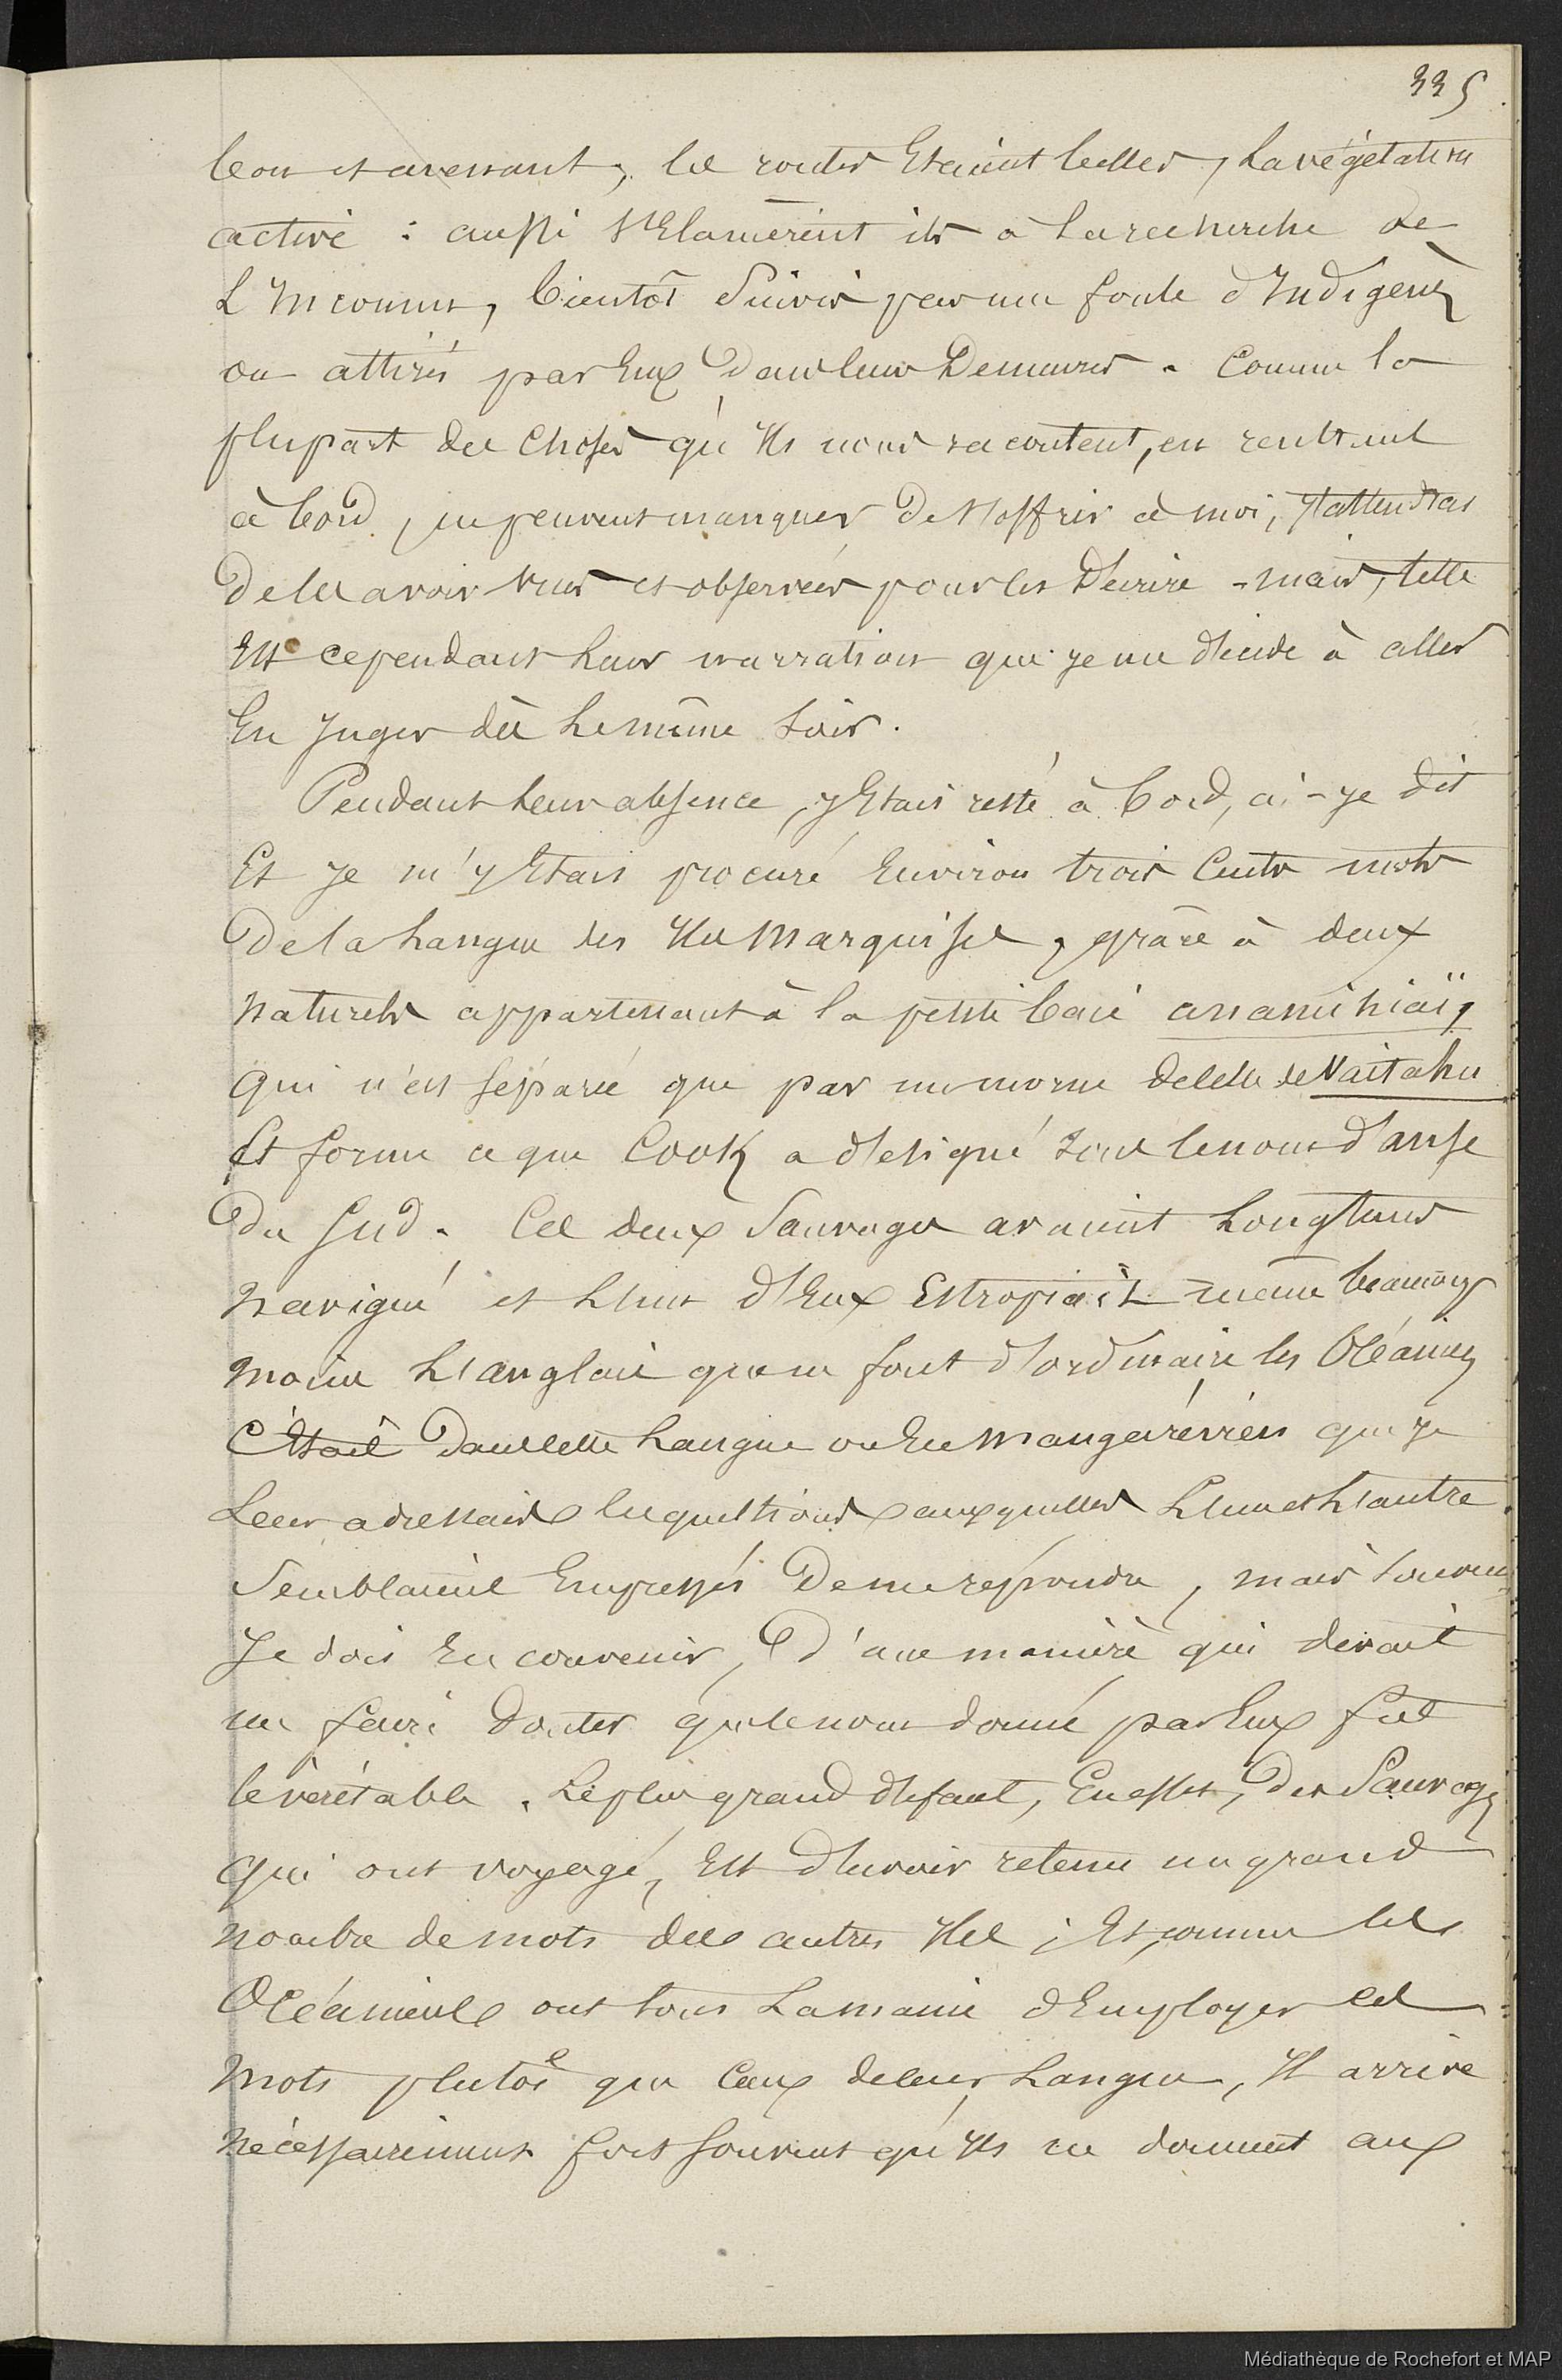 335
bon et avenant ; les routes Etaient belles, La végétation
active : aussi S'Elancèrent ils à La recherche de
L'Inconnu, bientôt Suivis par une foule d'Indigènes
ou attirés par Eux dans leurs Demeures. Comme la
plupart des choses qu'Ils nous racontent, en rentrant
à bord, ne peuvent manquer De s'offrir à moi, J'attendrai
De les avoir vues et observées pour les Décrire - mais, telle
Est cependant Leur narration que je me décide à aller
En Juger dès Le même Soir.
Pendant Leur absence, j'Etais resté à bord, ai-je dit
Et Je m'y Etais procuré Environ trois Cents mots
De la Langue des Iles Marquises, grâce à deux
Naturels appartenant à la petite baie anamihiaï,
Qui n'est séparée que par un morne de celle de Vaitahu
Et forme ce que Cook a désigné sous le nom d'anse
Du Sud. Ces deux Sauvages avaient Longtems
Navigué et L'un d'Eux Estropiait même beaucoup
Moins L'anglais que ne font d'ordinaire les Océaniens
C'Etait Dans cette Langue ou En Mangarévien que je
Leur adressais les questions auxquelles L'un et L'autre
Semblaient Empressés De me répondre, mais souvent,
Je dois En convenir, D'une manière qui devait
me faire douter que le nom donné par Eux fut
le véritable. Le plus grand défaut, En effet, Des Sauvages
Qui ont voyagé, Est d'avoir retenu un grand
Nombre de mots des autres Iles ; Et, comme les
Océaniens ont tous La manie d'Employer ces
Mots plutôt que Ceux de leur Langue, Il arrive
Nécessairement fort souvent qu'Ils ne donnent aux
Médiathèque de Rochefort et MAP